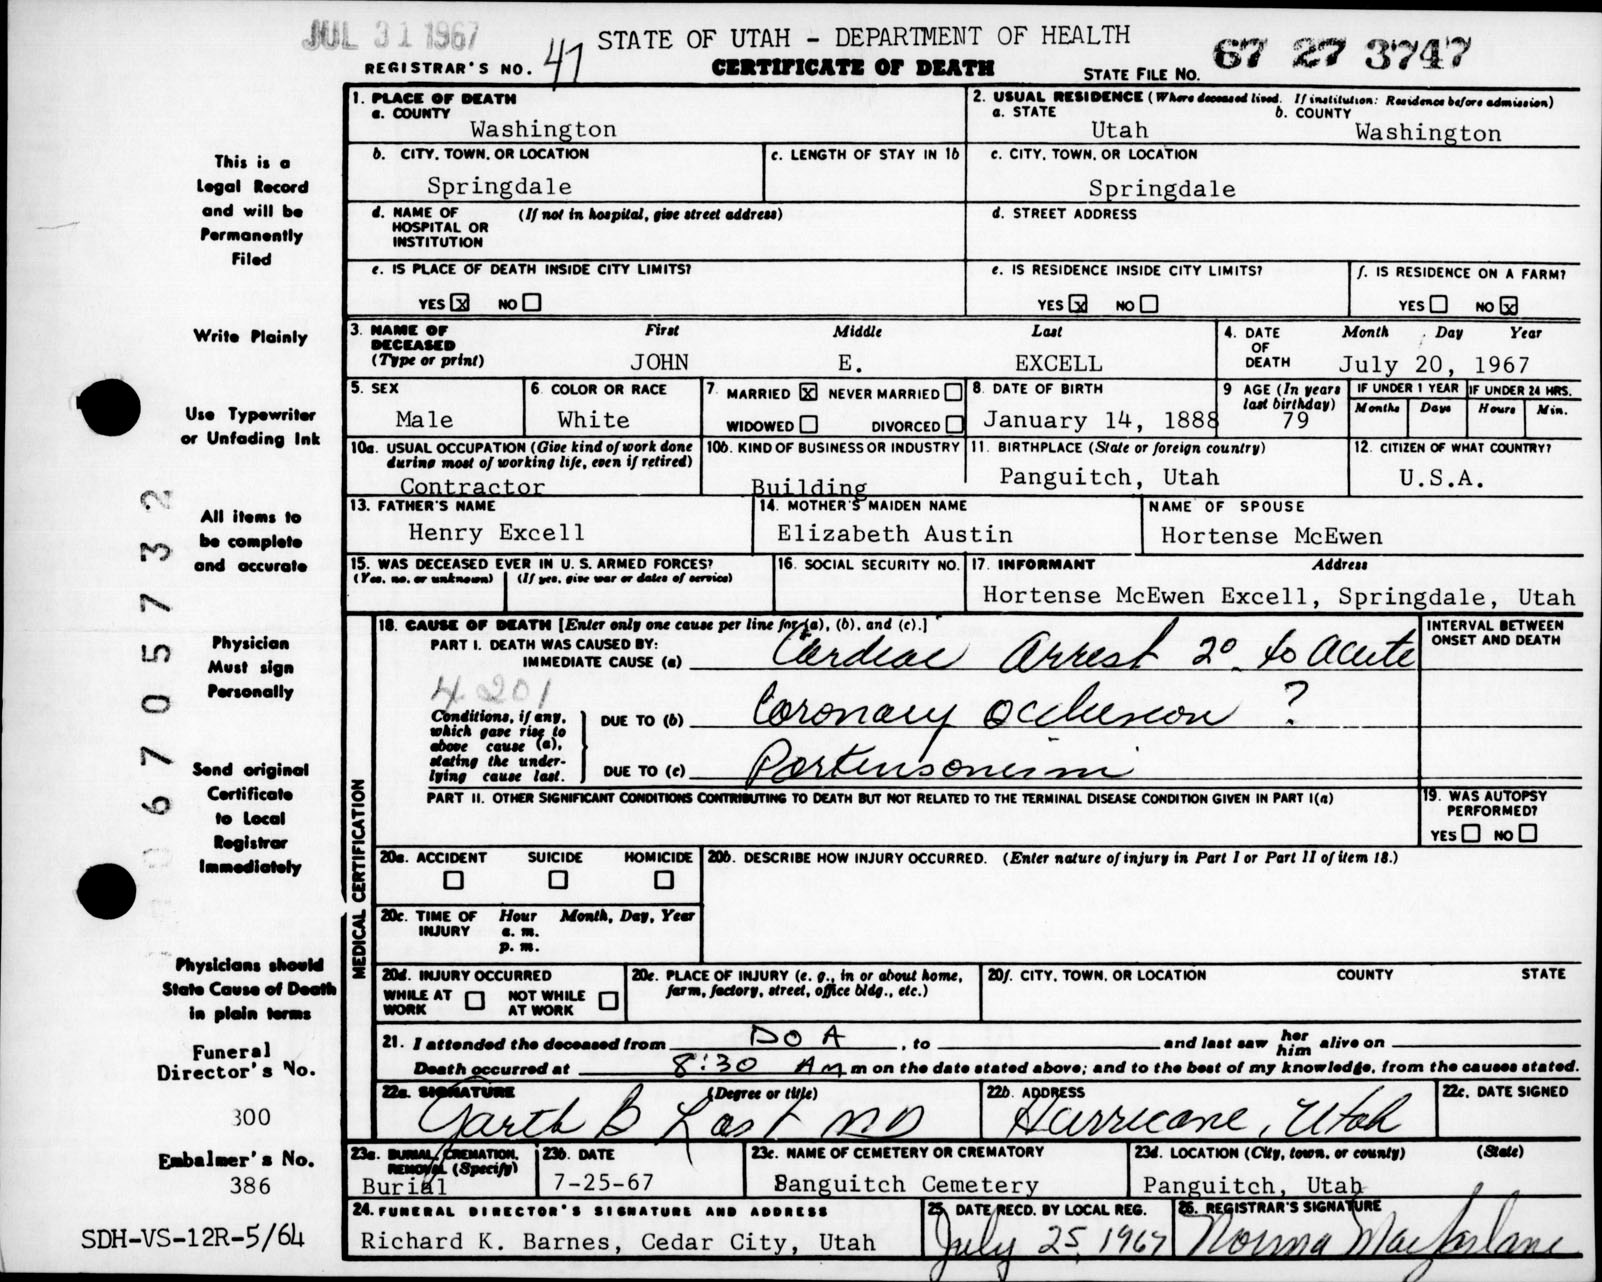 JUL 31 1967
STATE OF UTAH - DEPARTMENT OF HEALTH
67 27 3747
REGISTRAR'S NO. 47
CERTIFICATE OF DEATH
STATE FILE NO.
1. PLACE OF DEATH
a. COUNTY
Washington
2. USUAL RESIDENCE (Where deceased lived. If institution: Residence before admission)
a. STATE
b. COUNTY
Utah
Washington
b. CITY, TOWN, OR LOCATION
c. LENGTH OF STAY IN 1b
c. CITY, TOWN, OR LOCATION
Springdale
Springdale
d. NAME OF HOSPITAL OR INSTITUTION
(If not in hospital, give street address)
d. STREET ADDRESS
e. IS PLACE OF DEATH INSIDE CITY LIMITS?
YES X NO
e. IS RESIDENCE INSIDE CITY LIMITS?
YES X NO
f. IS RESIDENCE ON A FARM?
YES NO X
3. NAME OF DECEASED (Type or print)
First Middle Last
JOHN E. EXCELL
4. DATE OF DEATH
Month Day Year
July 20, 1967
5. SEX
Male
6. COLOR OR RACE
White
7. MARRIED X NEVER MARRIED
WIDOWED DIVORCED
8. DATE OF BIRTH
January 14, 1888
9 AGE (In years last birthday)
79
IF UNDER 1 YEAR
Months Days
IF UNDER 24 HRS.
Hours Min.
10a. USUAL OCCUPATION (Give kind of work done during most of working life, even if retired)
Contractor
10b. KIND OF BUSINESS OR INDUSTRY
Building
11. BIRTHPLACE (State or foreign country)
Panguitch, Utah
12. CITIZEN OF WHAT COUNTRY?
U.S.A.
13. FATHER'S NAME
Henry Excell
14. MOTHER'S MAIDEN NAME
Elizabeth Austin
NAME OF SPOUSE
Hortense McEwen
15. WAS DECEASED EVER IN U. S. ARMED FORCES?
(Yes, no, or unknown) (If yes, give war or dates of service)
16. SOCIAL SECURITY NO.
17. INFORMANT Address
Hortense McEwen Excell, Springdale, Utah
MEDICAL CERTIFICATION
18. CAUSE OF DEATH [Enter only one cause per line for (a), (b), and (c).]
INTERVAL BETWEEN ONSET AND DEATH
PART I. DEATH WAS CAUSED BY:
IMMEDIATE CAUSE (a) Cardiac Arrest 2° to Acute
4201
Conditions, if any, which gave rise to above cause (a), stating the underlying cause last.
DUE TO (b) Coronary Occlusion ?
DUE TO (c) Parkinsonism
PART II. OTHER SIGNIFICANT CONDITIONS CONTRIBUTING TO DEATH BUT NOT RELATED TO THE TERMINAL DISEASE CONDITION GIVEN IN PART I(a)
19. WAS AUTOPSY PERFORMED?
YES NO
20a. ACCIDENT SUICIDE HOMICIDE
20b. DESCRIBE HOW INJURY OCCURRED. (Enter nature of injury in Part I or Part II of item 18.)
20c. TIME OF INJURY
Hour Month, Day, Year
a. m.
p. m.
20d. INJURY OCCURRED
WHILE AT WORK NOT WHILE AT WORK
20e. PLACE OF INJURY (e. g., in or about home, farm, factory, street, office bldg., etc.)
20f. CITY, TOWN, OR LOCATION COUNTY STATE
21. I attended the deceased from DOA, to and last saw her him alive on
Death occurred at 8:30 Am m on the date stated above; and to the best of my knowledge, from the causes stated.
22a. SIGNATURE (Degree or title)
Garth B Last MD
22b. ADDRESS
Hurricane, Utah
22c. DATE SIGNED
23a. BURIAL, CREMATION, REMOVAL (Specify)
Burial
23b. DATE
7-25-67
23c. NAME OF CEMETERY OR CREMATORY
Panguitch Cemetery
23d. LOCATION (City, town, or county) (State)
Panguitch, Utah
24. FUNERAL DIRECTOR'S SIGNATURE AND ADDRESS
Richard K. Barnes, Cedar City, Utah
25. DATE RECD. BY LOCAL REG.
July 25, 1967
26. REGISTRAR'S SIGNATURE
Norma Macfarlane
This is a
Legal Record
and will be
Permanently
Filed
Write Plainly
Use Typewriter
or Unfading Ink
All items to
be complete
and accurate
Physician
Must sign
Personally
Send original
Certificate
to Local
Registrar
Immediately
Physicians should
State Cause of Death
in plain terms
Funeral
Director's No.
300
Embalmer's No.
386
SDH-VS-12R-5/64
06705732